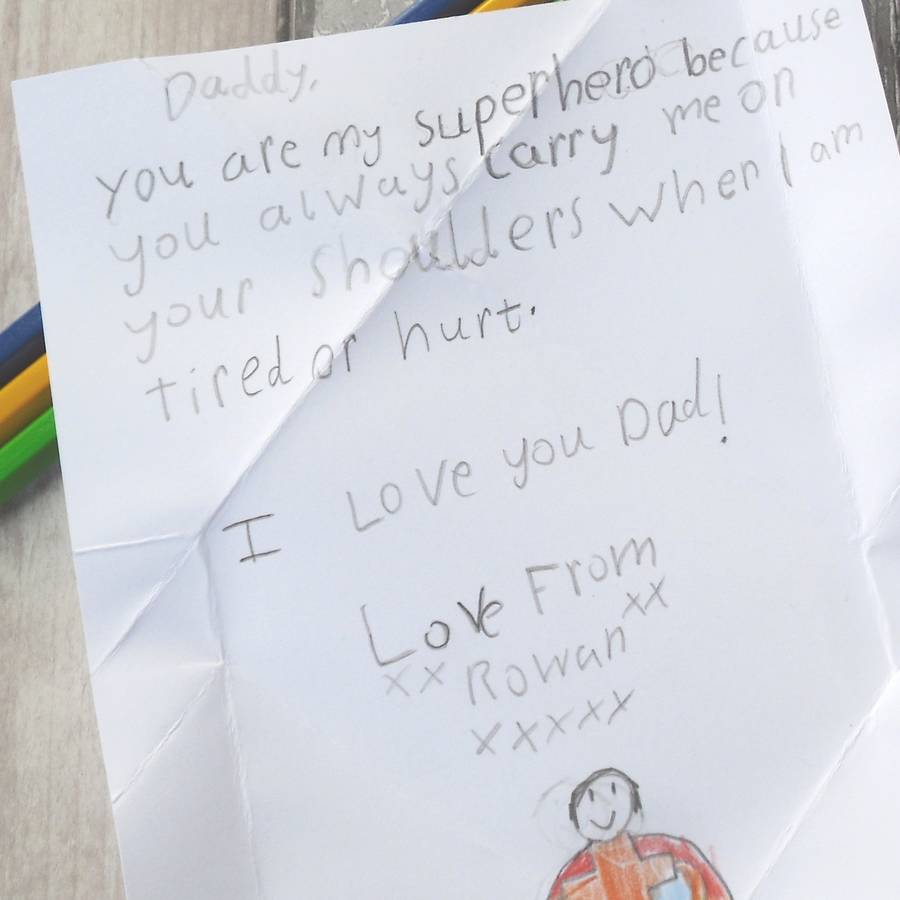 Daddy,
you are my superhero because
you always carry me on
your shoulders when I am
tired or hurt.
I Love you Dad!
Love From
xx Rowan xx
xxxxx